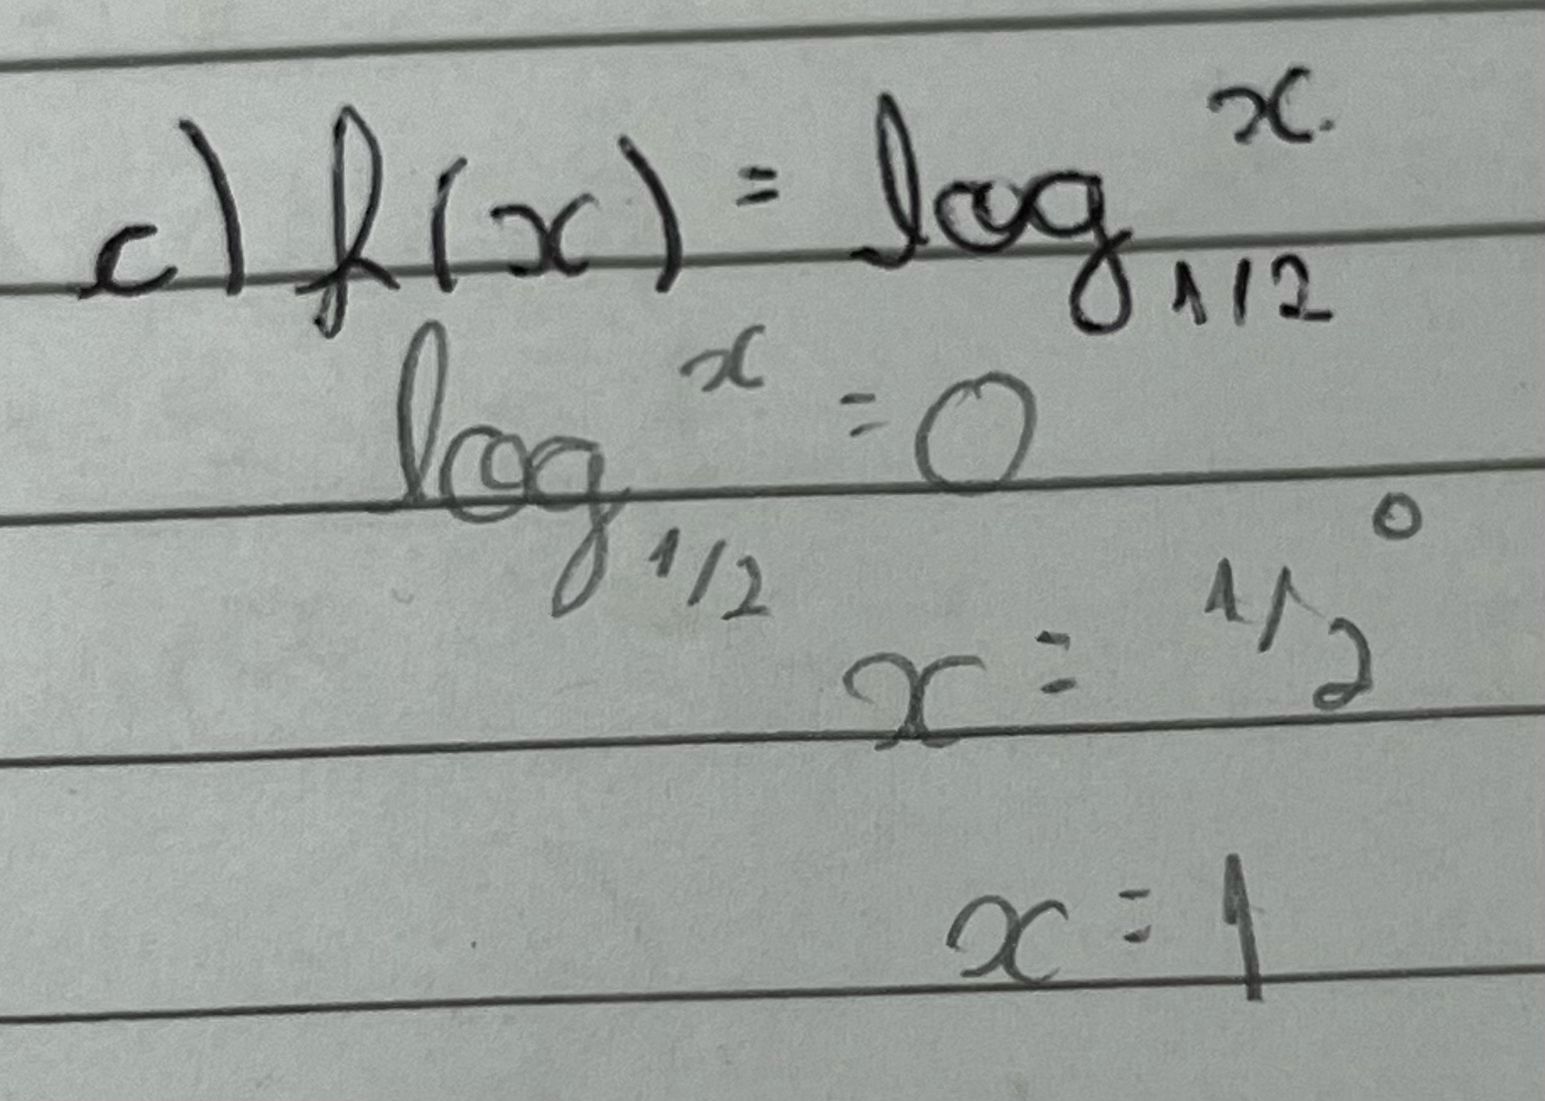 c) f(x) = log₁/₂ˣ
log₁/₂ˣ = 0
x = 1/2⁰
x = 1